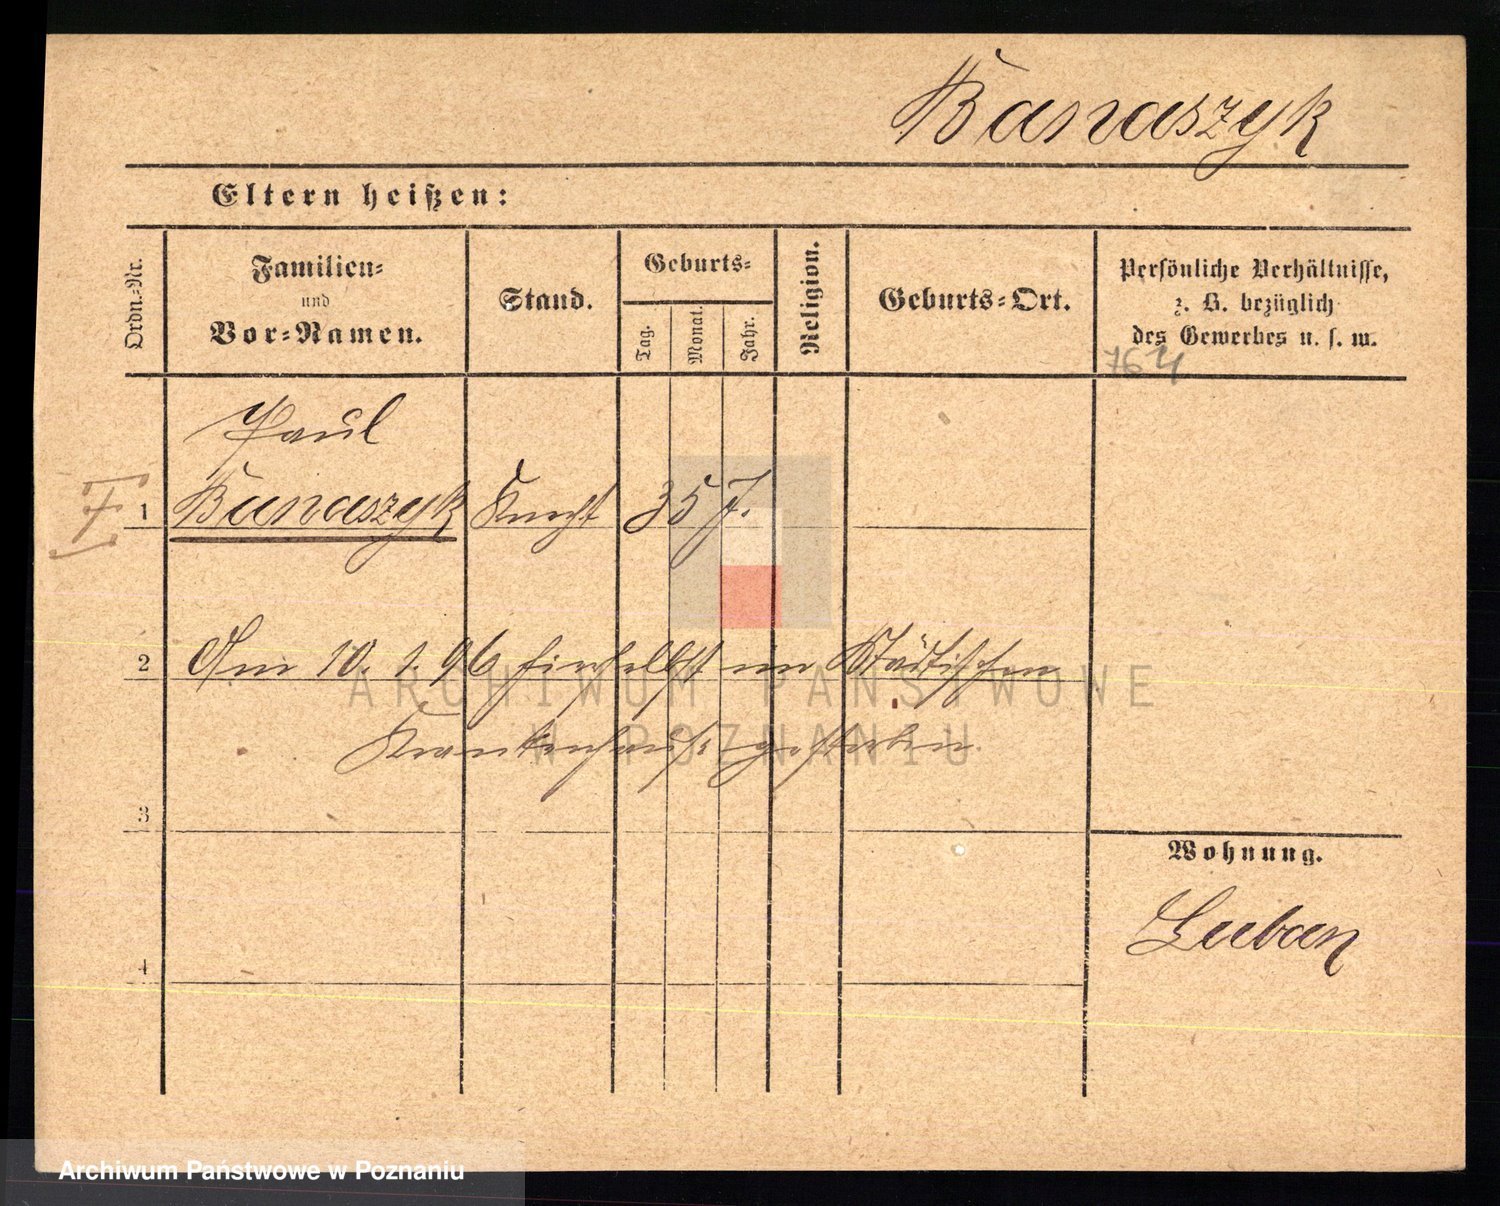 Banaszyk
Eltern heißen:
Ordn.-Nr.
Familien-
und
Vor-Namen.
Stand.
Geburts-
Tag.
Monat.
Jahr.
Religion.
Geburts-Ort.
Persönliche Verhältnisse,
z. B. bezüglich
des Gewerbes u. s. w.
764
Paul
1 Banaszyk Knecht 35 J.
2 Am 10. 1. 96 hierselbst im Städtischen
Krankenhause gestorben.
3
4
Wohnung.
Luban
ARCHIWUM PAŃSTWOWE
W POZNANIU
Archiwum Państwowe w Poznaniu